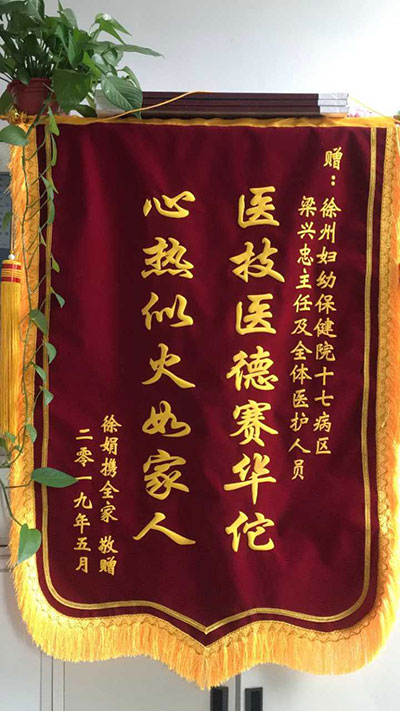 赠：徐州妇幼保健院十七病区
梁兴忠主任及全体医护人员
医技医德赛华佗
心热似火如家人
徐娟携全家 敬赠
二零一九年五月